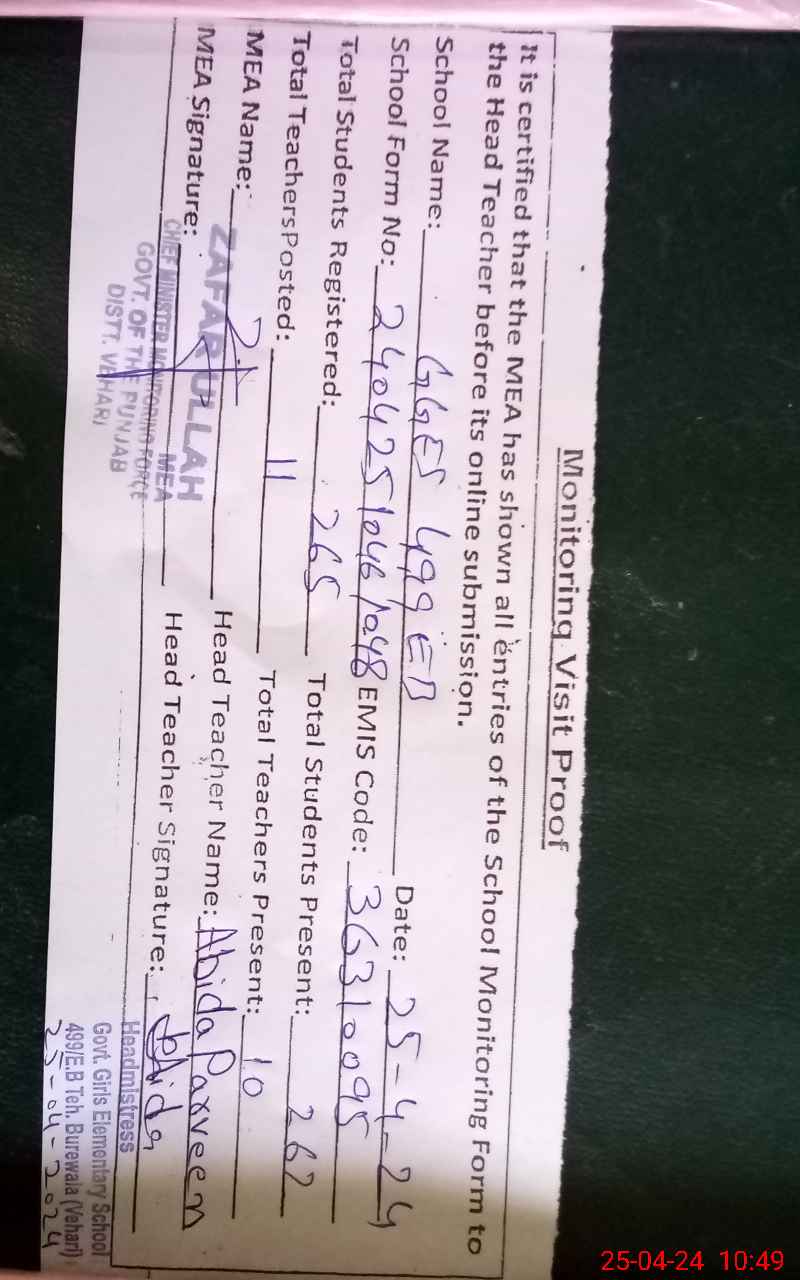 Monitoring Visit Proof
It is certified that the MEA has shown all entries of the School Monitoring Form to
the Head Teacher before its online submission.
School Name: GGES 499 EB Date: 25-4-24
School Form No: 2404251046/1048 EMIS Code: 36310095
Total Students Registered: 265 Total Students Present: 262
Total TeachersPosted: 11 Total Teachers Present: 10
MEA Name: ZAFAR ULLAH Head Teacher Name: Abida Parveen
MEA Signature: MEA Head Teacher Signature: Abida
CHIEF MINISTER MONITORING FORCE
GOVT. OF THE PUNJAB
DISTT. VEHARI
Headmistress
Govt. Girls Elementary School
499/E.B Teh. Burewala (Vehari)
25-04-2024
25-04-24 10:49